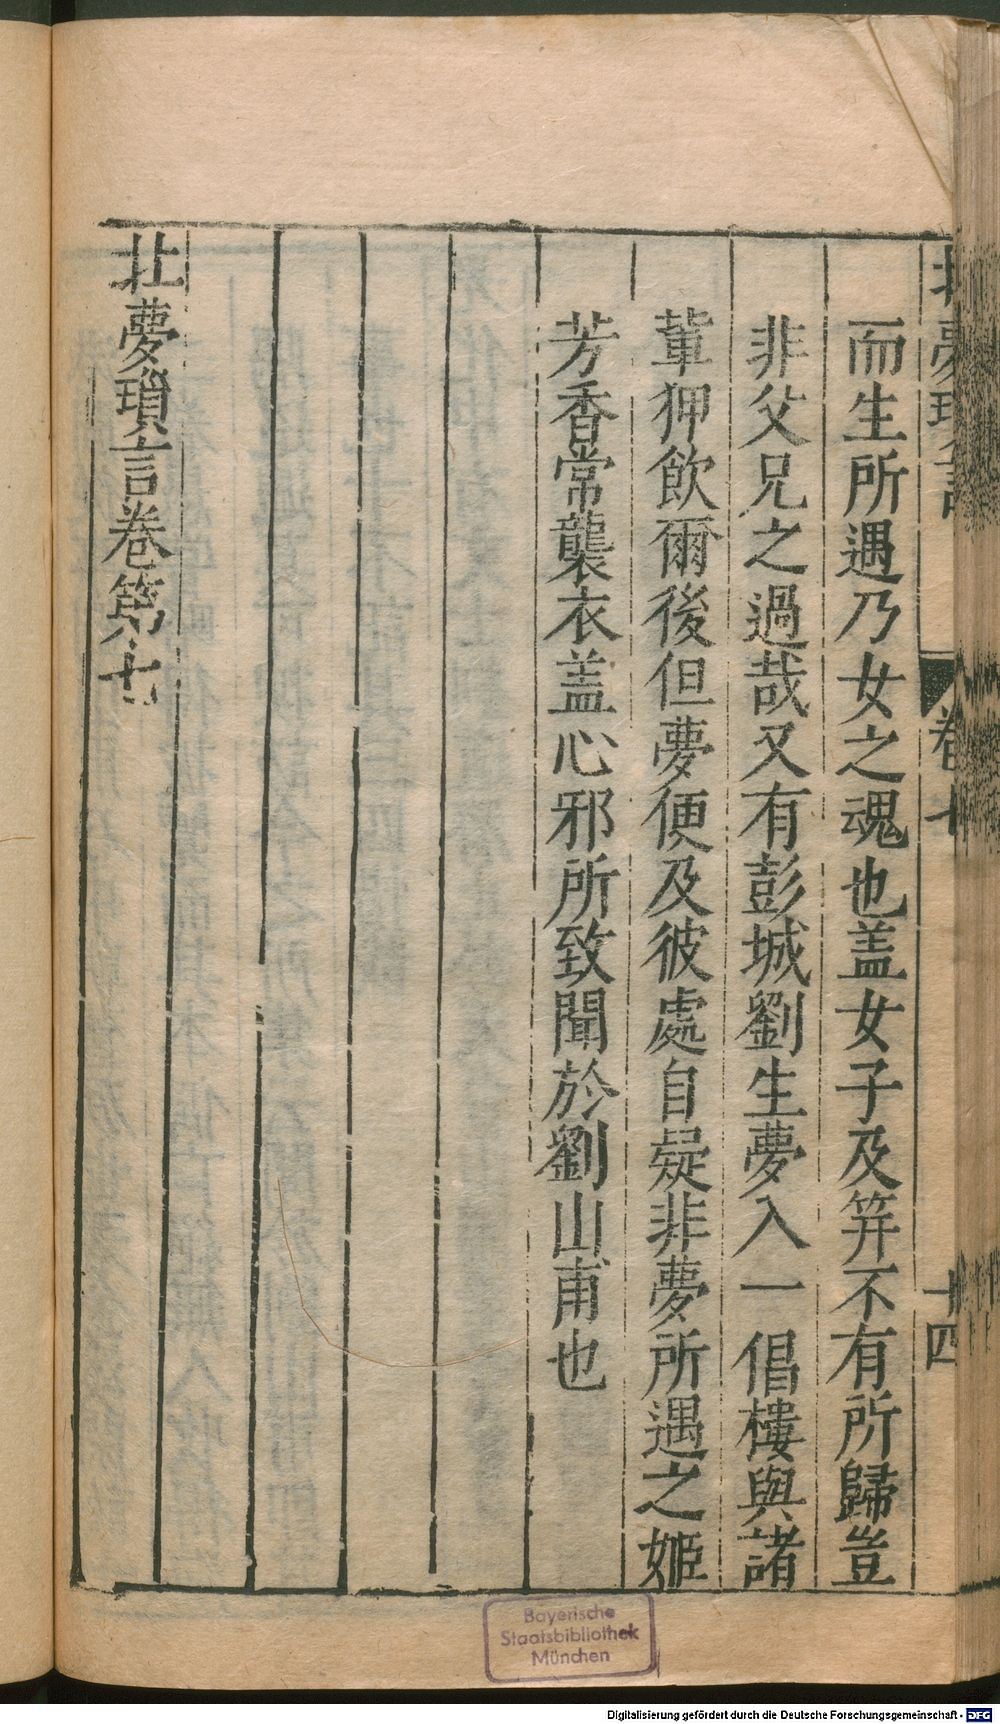 北夢瑣言
卷七
十四
而生所遇乃女之魂也盖女子及笄不有所歸豈
非父兄之過哉又有彭城劉生夢入一倡樓與諸
軰狎飲爾後但夢便及彼處自疑非夢所遇之姬
芳香常襲衣盖心邪所致聞於劉山甫也
北夢瑣言卷第七
Bayerische
Staatsbibliothek
München
Digitalisierung gefördert durch die Deutsche Forschungsgemeinschaft - DFG